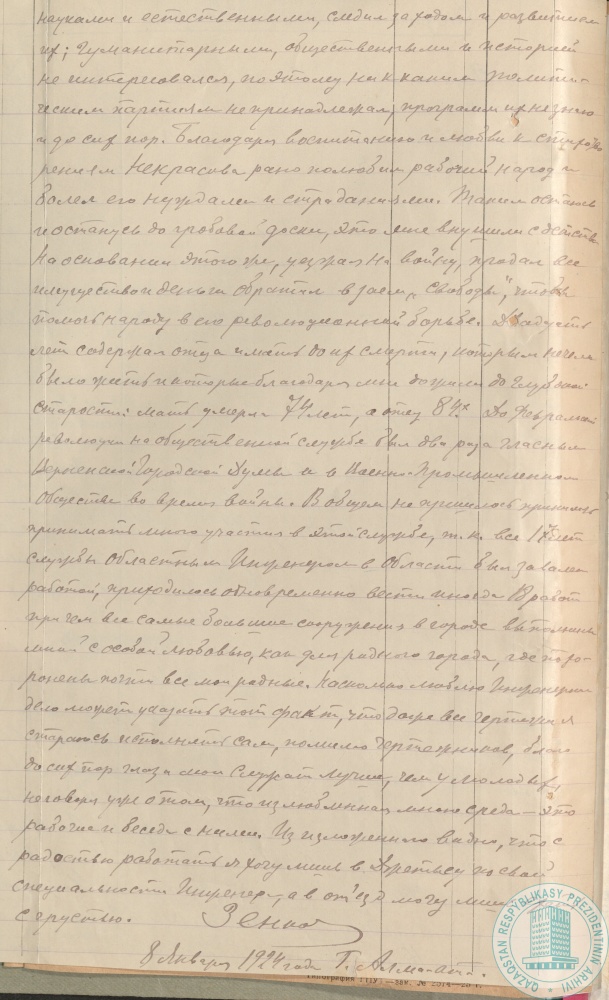 науками и естественными, следил за ходом и развитием
их; гуманитарными, общественными и историей
не интересовался, поэтому ни к каким полити-
ческим партиям не принадлежал, программ их не знаю
и до сих пор. Благодаря воспитанию и любви к стихотво
рениям Некрасова рано полюбил рабочий народ и
болел его нуждами и страданиями. Таким остаюсь
и останусь до гробовой доски, это мне внушили с детства.
На основании этого же, уезжая на войну, продал все
имущество и деньги обратил в заем "Свободы", чтобы
помочь народу в его революционной борьбе. Двадцать
лет содержал отца и мать до их смерти, которым нечем
было жить и которые благодаря мне дожили до глубокой
старости: мать умерла 74 лет, а отец 84х. До февральской
революции на общественной службе был два раза гласным
Верненской Городской Думы и в Военно-Промышленном
Обществе во время войны. В общем не пришлось
принимать много участия в этой службе, т.к. все 17 лет
службы Областным Инженером в области был завален
работой, приходилось одновременно вести иногда работ
при чем все самые большие сооружения в городе выполнены
мной с особой любовью, как для родного города, где похо-
ронены почти все мои родные. Насколько люблю Инженерное
дело может указать тот факт, что даже все чертежи я
стараюсь исполнять сам, помимо чертежников, благо
до сих пор глаза мои служат лучше, чем у молодых,
не говоря уже о том, что излюбленная мною среда - это
рабочие и беседа с ними. Из изложенного видно, что с
радостью работать я хочу лишь в по своей
специальности Инженера, а в отъезд могу лишь
с грустью. Зенков
8 Января 1924 года Г. Алма-Ата.
QAZAQSTAN RESPÝBLIKASY PREZIDENTINIŃ ARHIVI